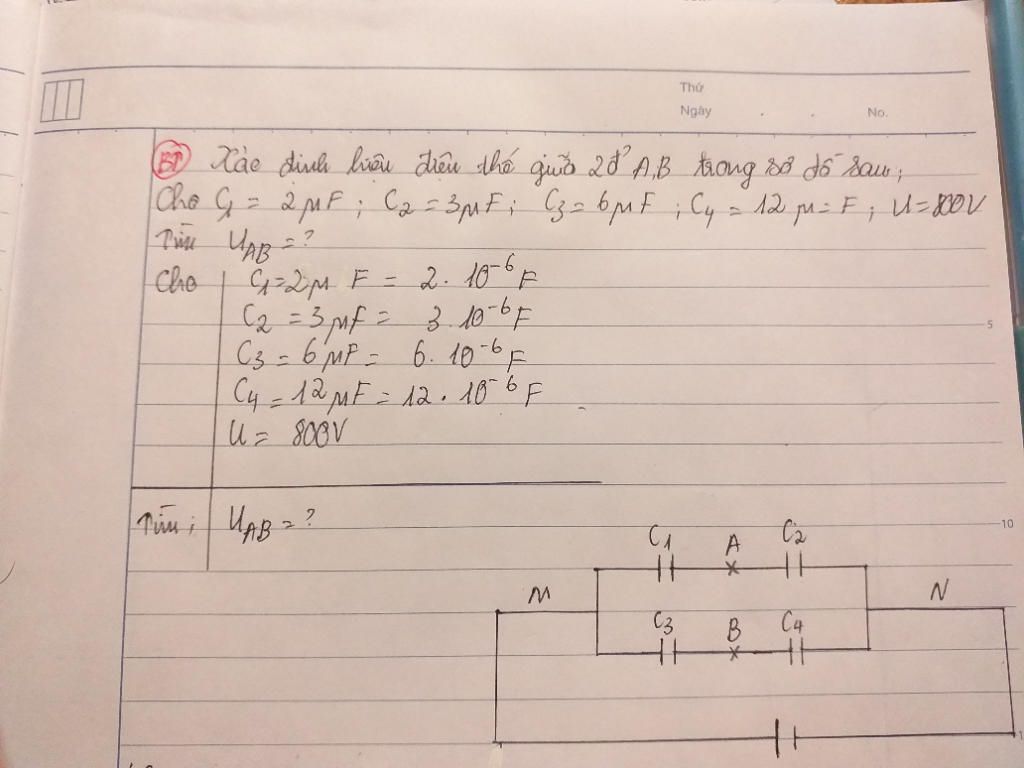 Thứ
Ngày . . No.
BT Xác định hiệu điện thế giữa 2đ' A,B trong sơ đồ sau;
Cho C1 = 2μF ; C2 = 3μF ; C3 = 6μF ; C4 = 12 μ=F ; U=800V
Tìm UAB = ?
Cho C1=2μ F = 2. 10^-6 F
C2 = 3μF = 3. 10^-6 F
C3 = 6μF = 6. 10^-6 F
C4 = 12μF = 12. 10^-6 F
U = 800V
5
Tìm ; UAB = ?
10
C1 A C2
M N
C3 B C4